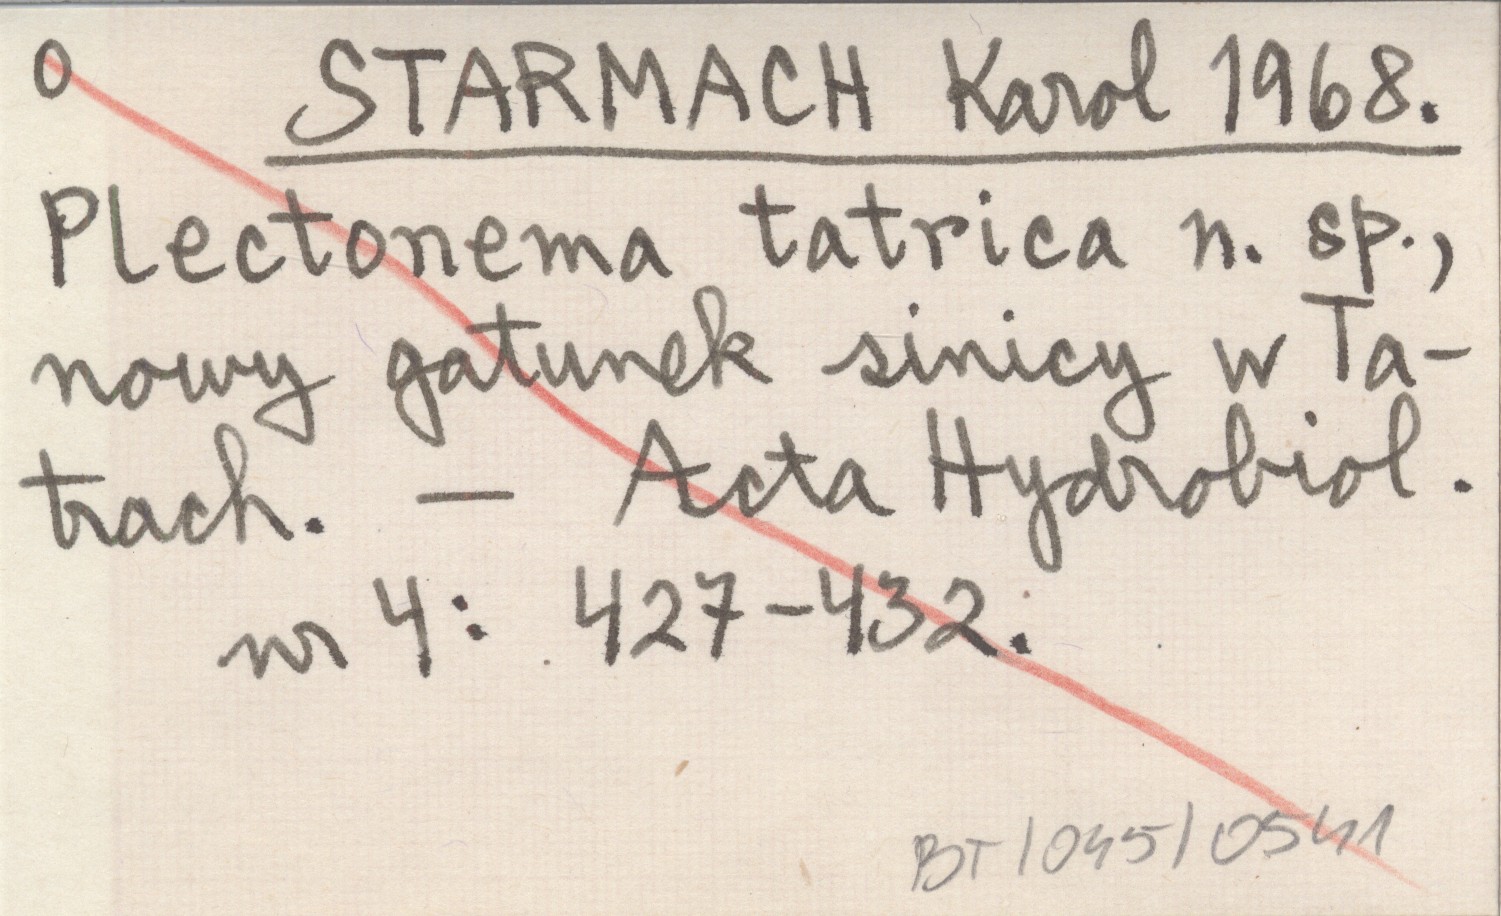 0 STARMACH Karol 1968.
Plectonema tatrica n. sp.,
nowy gatunek sinicy w Ta-
trach. — Acta Hydrobiol.
nr 4: 427-432.
BT/045/0541